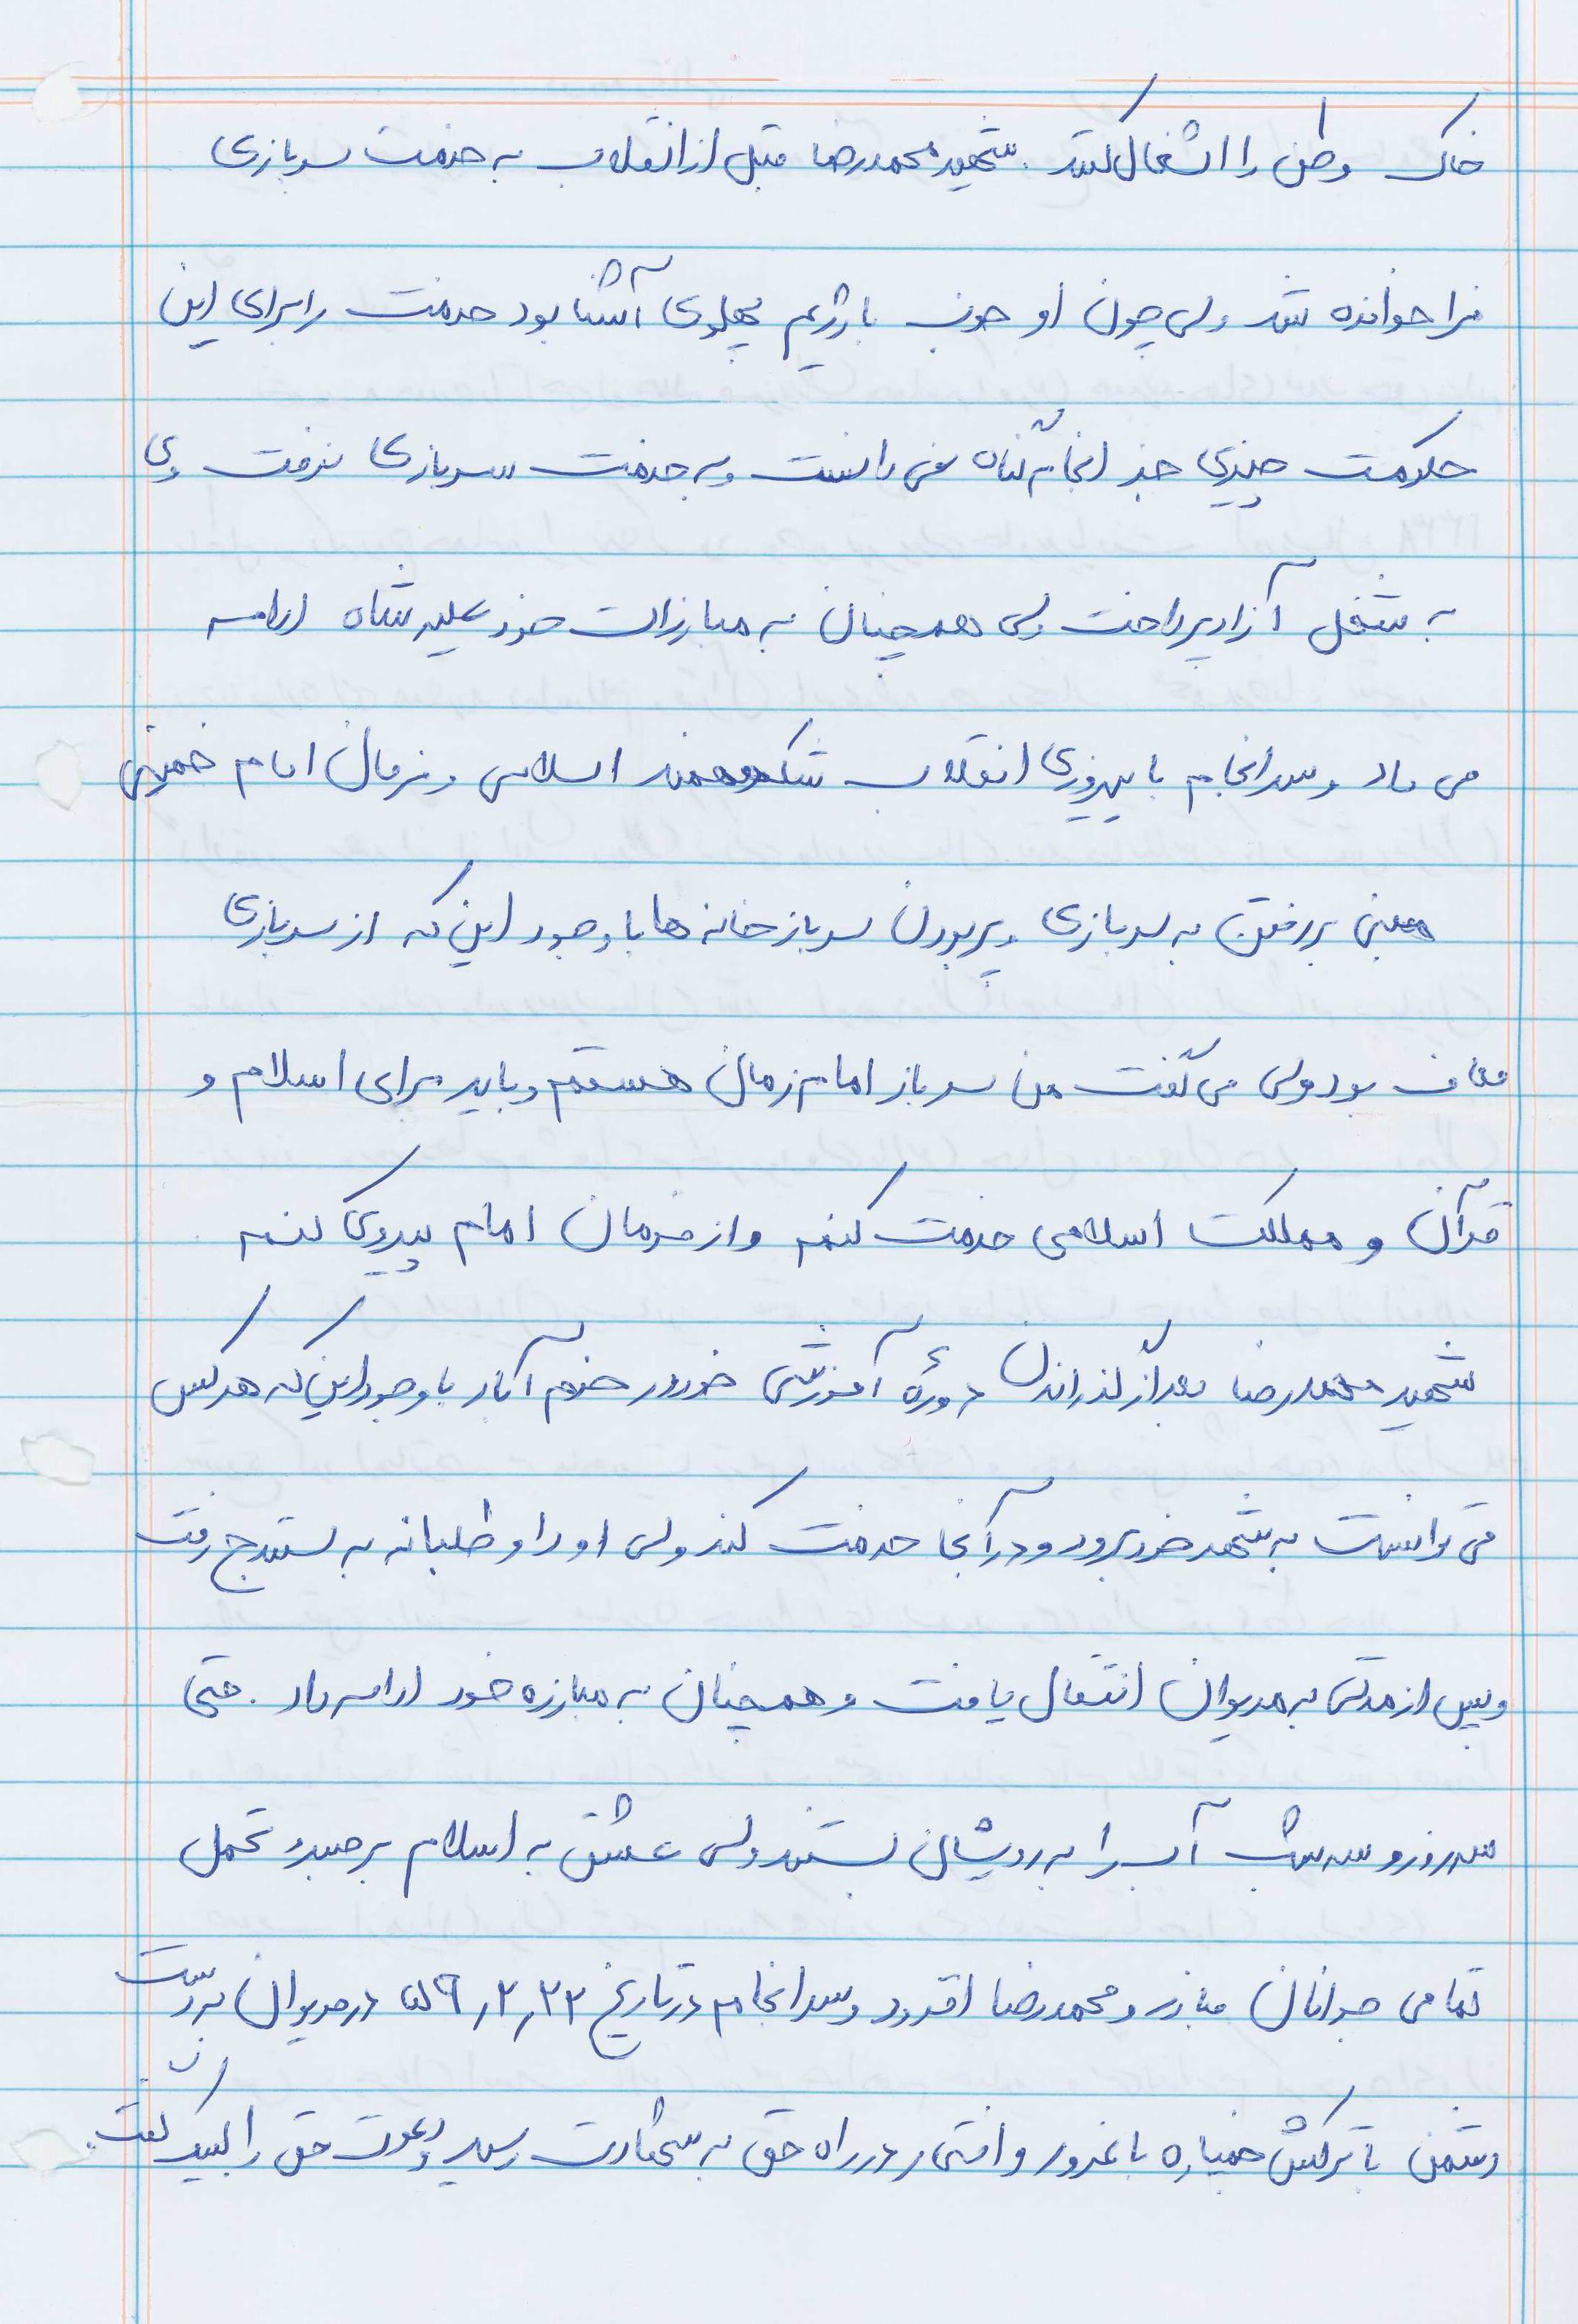 خاک وطن را اشغال کنند. شهید محمدرضا قبل از انقلاب به خدمت سربازی
فراخوانده شد ولی چون او خوب با رژیم پهلوی آشنا بود خدمت را برای این
حکومت چیزی جز انجام گناه نمی دانست و به خدمت سربازی نرفت وی
به شغل آزاد پرداخت ولی همچنان به مبارزات خود علیه شاه ادامه
می داد و سرانجام با پیروزی انقلاب شکوهمند اسلامی و فرمان امام خمینی
مبنی بر رفتن به سربازی و پر بودن سربازخانه ها با وجود این که از سربازی
معاف بود ولی می گفت من سرباز امام زمان هستم و باید برای اسلام و
قرآن و مملکت اسلامی خدمت کنم و از فرمان امام پیروی کنم.
شهید محمدرضا بعد از گذراندن دورهٔ آموزشی خود در خرم آباد با وجود این که هرکس
می توانست به شهر خود برود و در آنجا خدمت کند ولی او داوطلبانه به سنندج رفت
و پس از مدتی به مریوان انتقال یافت و همچنان به مبارزه خود ادامه داد. حتی
سه روز و سه شب آب را به رویشان بستند ولی عشق به اسلام بر صبر و تحمل
تمامی جوانان مبارز و محمدرضا افزود و سرانجام در تاریخ ۵۹,۲,۲۳ در مریوان به دست
دشمن با ترکش خمپاره با غرور و افتخار در راه حق به شهادت رسید و دعوت حق را لبیک گفت.